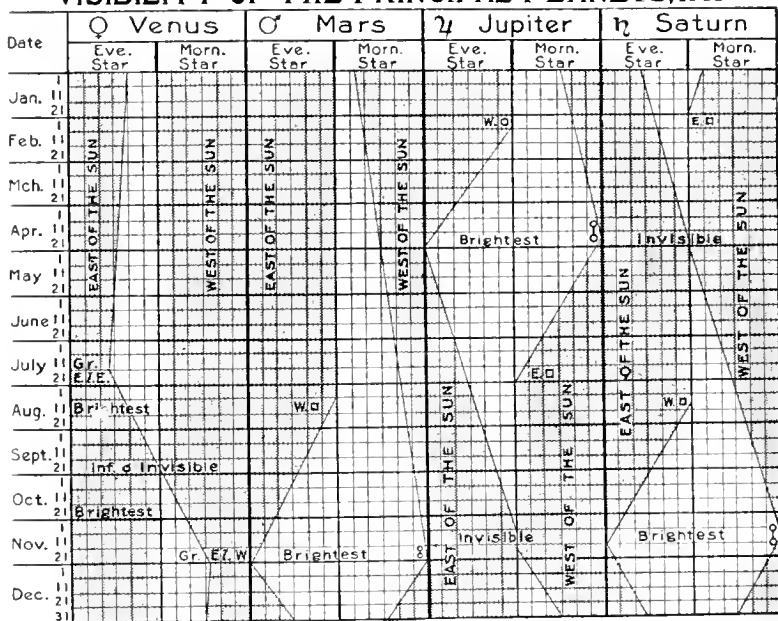 Date ♀ Venus ♂ Mars ♃ Jupiter ♄ Saturn
Eve. Star Morn. Star Eve. Star Morn. Star Eve. Star Morn. Star Eve. Star Morn. Star
1
Jan. 11
21
1
Feb. 11
21
1
Mch. 11
21
1
Apr. 11
21
1
May 11
21
1
June 11
21
1
July 11
21
1
Aug. 11
21
1
Sept. 11
21
1
Oct. 11
21
1
Nov. 11
21
1
Dec. 11
21
31
EAST OF THE SUN
WEST OF THE SUN
Gr.
El. E.
Brightest
Inf. ☌ Invisible
Brightest
Gr. El. W
EAST OF THE SUN
WEST OF THE SUN
W. □
Brightest
☍
W. □
Brightest
☍
E. □
EAST OF THE SUN
WEST OF THE SUN
Invisible
E. □
Invisible
EAST OF THE SUN
WEST OF THE SUN
W. □
Brightest
☍